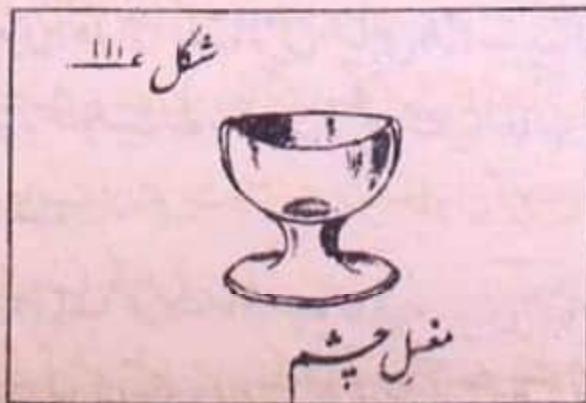 شکل ۱۱۱
مغسلِ چشم